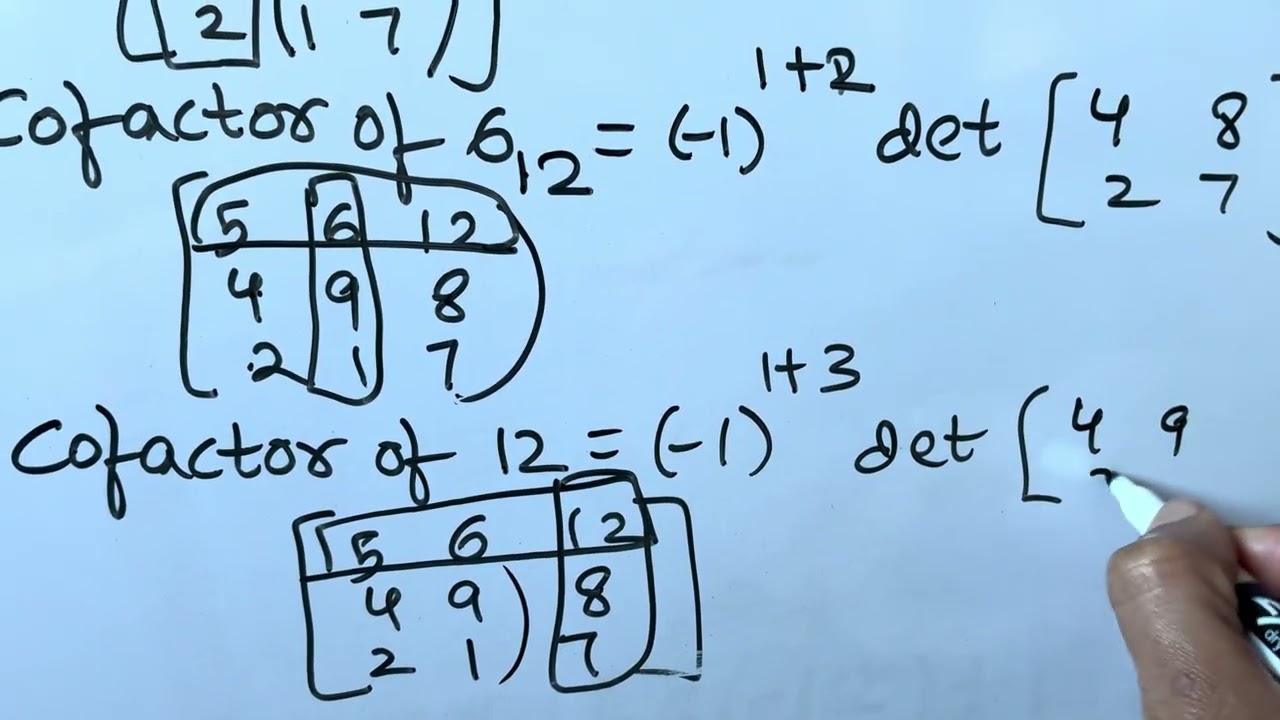 [2 (1 7)]
Cofactor of 6₁₂ = (-1)¹⁺² det [4 8
2 7
[5 6 12
4 9 8
2 1 7
Cofactor of 12 = (-1)¹⁺³ det [4 9
[5 6 12
4 9 8
2 1 7]